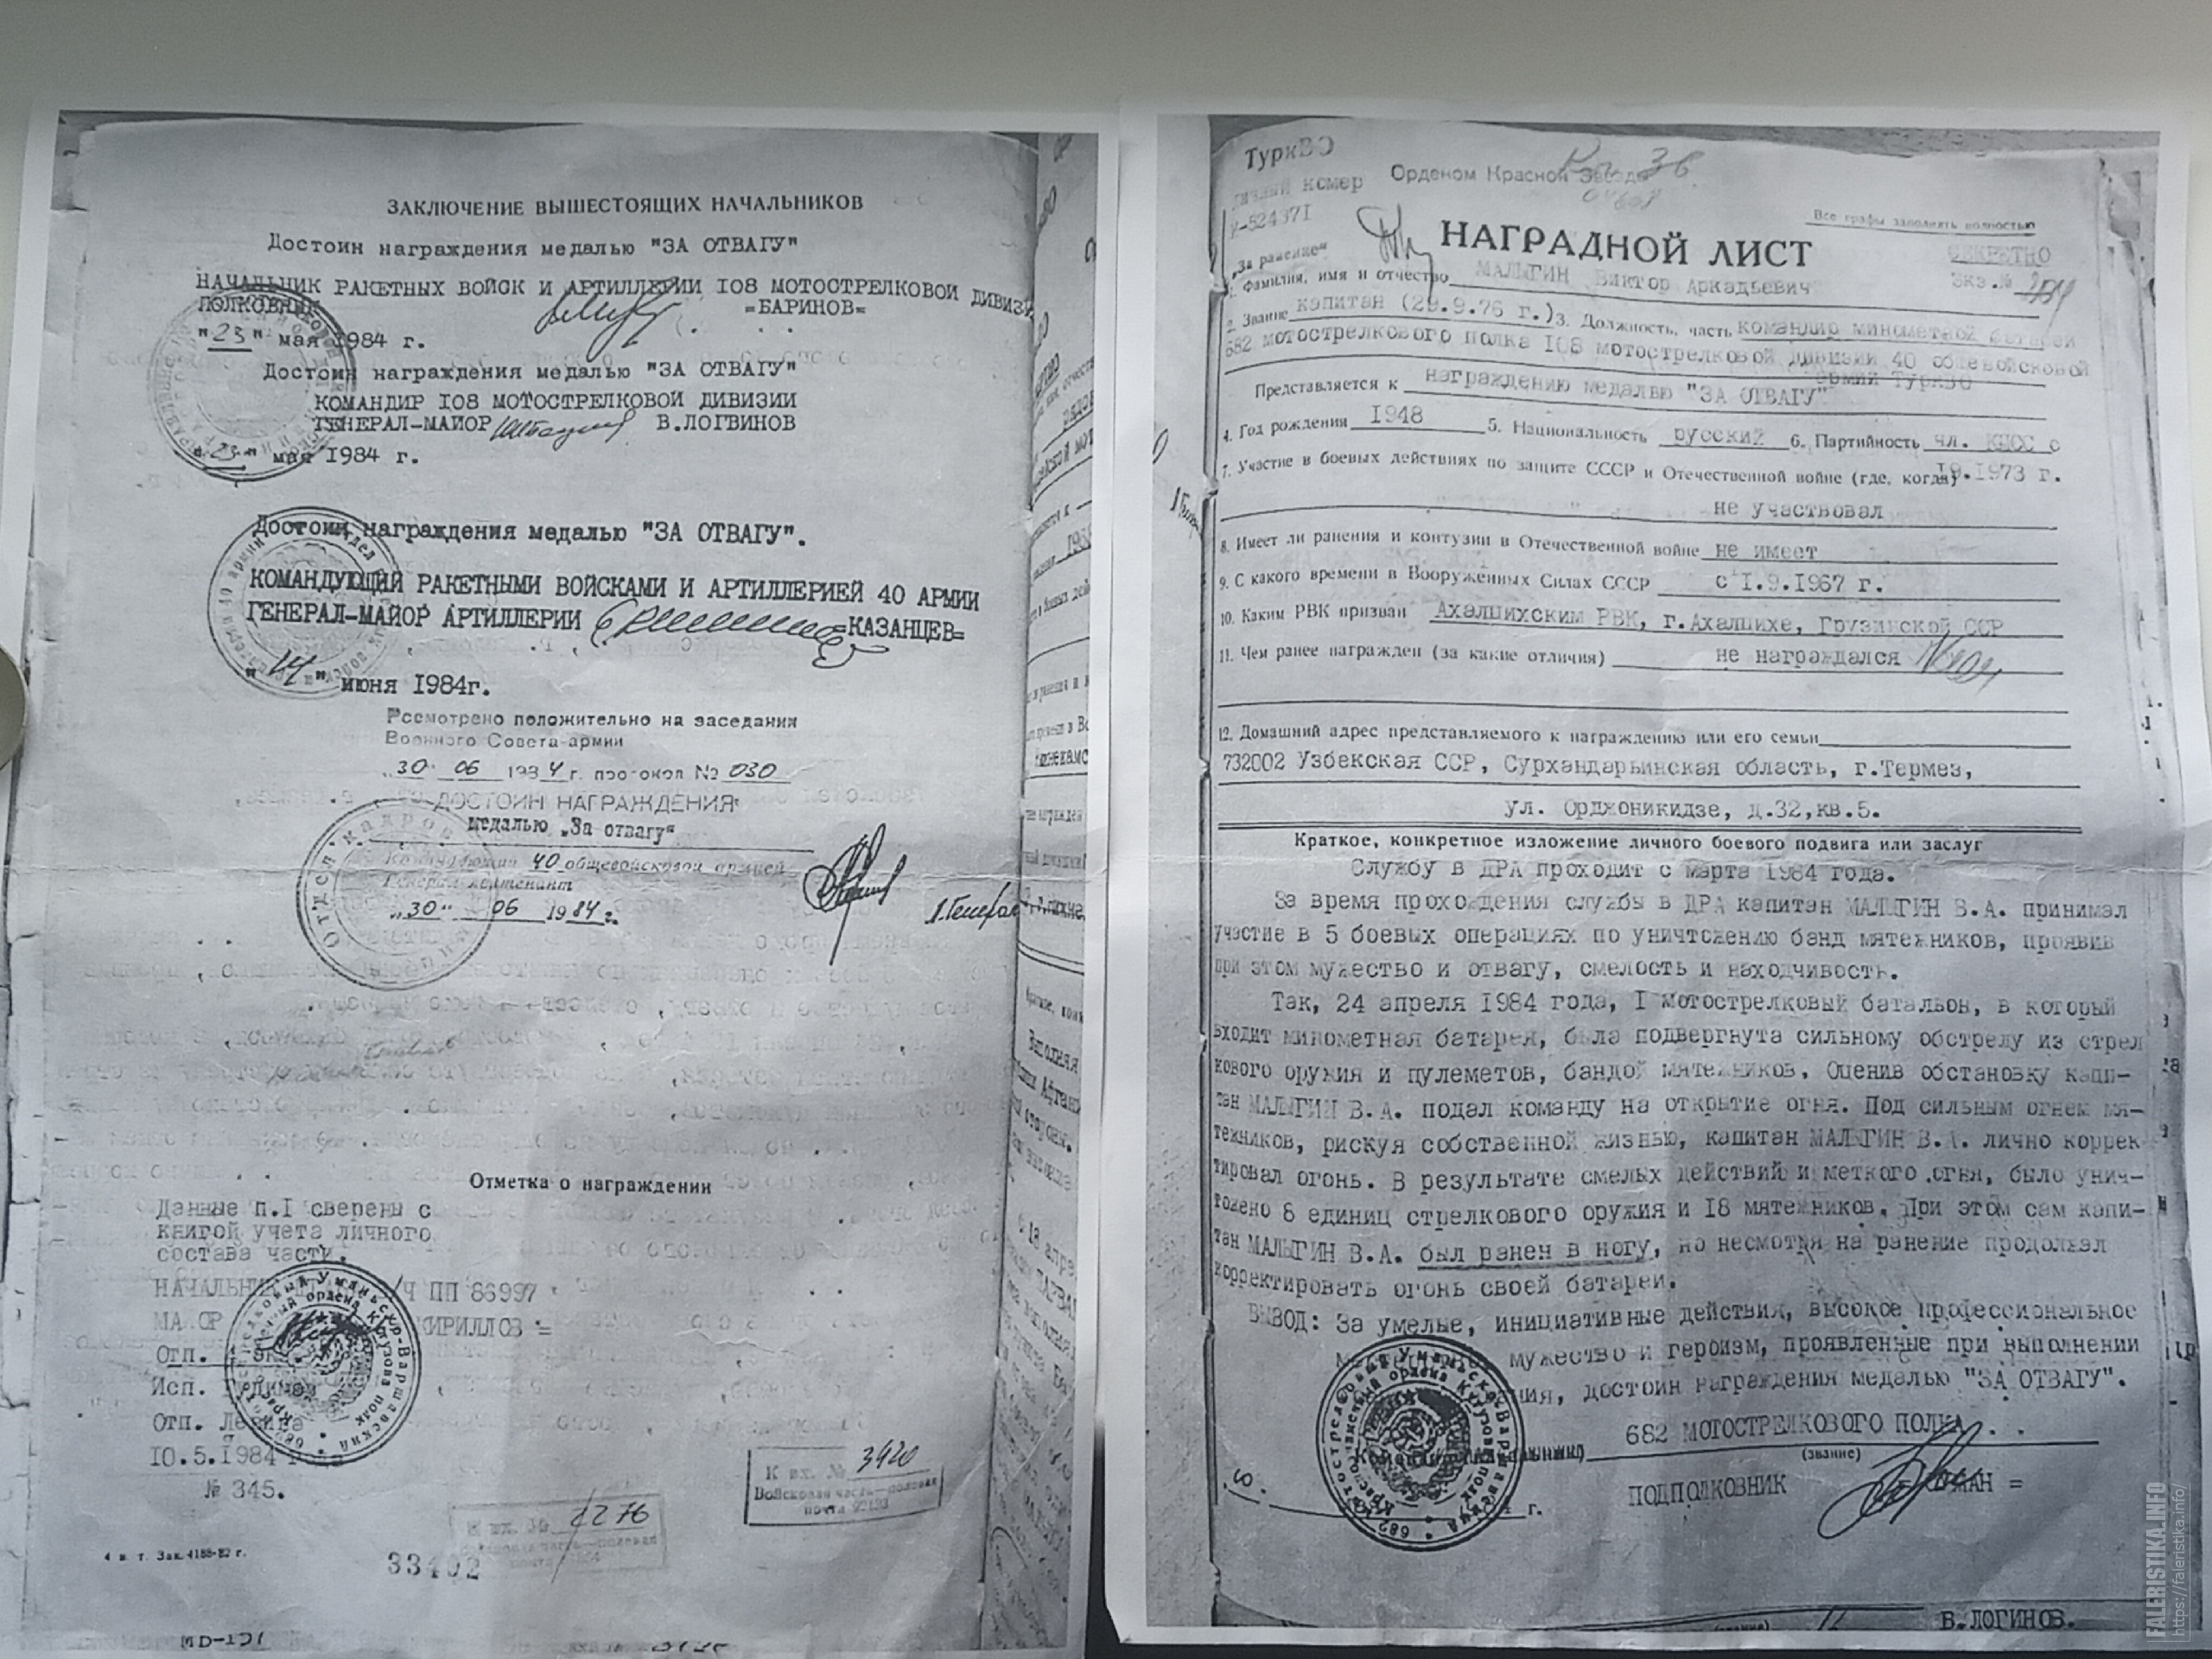 ЗАКЛЮЧЕНИЕ ВЫШЕСТОЯЩИХ НАЧАЛЬНИКОВ
Достоин награждения медалью "ЗА ОТВАГУ"
НАЧАЛЬНИК РАКЕТНЫХ ВОЙСК И АРТИЛЛЕРИИ 108 МОТОСТРЕЛКОВОЙ ДИВИЗИ
ПОЛКОВНИК =БАРИНОВ=
"23" мая 1984 г.
Достоин награждения медалью "ЗА ОТВАГУ"
КОМАНДИР 108 МОТОСТРЕЛКОВОЙ ДИВИЗИИ
ГЕНЕРАЛ-МАЙОР В.ЛОГВИНОВ
"23" мая 1984 г.
Достоин награждения медалью "ЗА ОТВАГУ".
КОМАНДУЮЩИЙ РАКЕТНЫМИ ВОЙСКАМИ И АРТИЛЛЕРИЕЙ 40 АРМИИ
ГЕНЕРАЛ-МАЙОР АРТИЛЛЕРИИ =КАЗАНЦЕВ=
"14" июня 1984г.
Рссмотрено положительно на заседании
Военного Совета армии
"30" 06 1984 г. протокол № 030
ДОСТОИН НАГРАЖДЕНИЯ
медалью „За отвагу"
Командующий 40 общевойсковой армией
Генерал-лейтенант
"30" 06 1984 г.
Отметка о награждении
Данные п.I сверены с
книгой учета личного
состава части.
НАЧАЛЬНИК В/Ч ПП 86997
МАЙОР КИРИЛЛОВ =
Отп.
Исп.
Отп.
10.5.1984 года
№ 345.
К вх. № 3920
Войсковая часть—полевая
почта
1276
4 в. т. Зак. 4188-82 г.
33402
ТуркВО
личный номер
Орденом Красной Звезды
Все графы заполнять полностью
НАГРАДНОЙ ЛИСТ
СЕКРЕТНО
„За ранение"
Экз.№
1. Фамилия, имя и отчество МАЛЫГИН Виктор Аркадьевич
2. Звание капитан (29.9.76 г.) 3. Должность, часть командир минометной батареи
682 мотострелкового полка 108 мотострелковой дивизии 40 общевойсковой
армии ТуркВО
Представляется к награждению медалью "ЗА ОТВАГУ"
4. Год рождения 1948 5. Национальность русский 6. Партийность чл. КПСС с
7. Участие в боевых действиях по защите СССР и Отечественной войне (где, когда) 1973 г.
не участвовал
8. Имеет ли ранения и контузии в Отечественной войне не имеет
9. С какого времени в Вооруженных Силах СССР с 1.9.1967 г.
10. Каким РВК призван Ахалцихским РВК, г.Ахалцихе, Грузинской ССР
11. Чем ранее награжден (за какие отличия) не награждался
12. Домашний адрес представляемого к награждению или его семьи
732002 Узбекская ССР, Сурхандарьинская область, г.Термез,
ул. Орджоникидзе, д.32,кв.5.
Краткое, конкретное изложение личного боевого подвига или заслуг
Службу в ДРА проходит с марта 1984 года.
За время прохождения службы в ДРА капитан МАЛЫГИН В.А. принимал
участие в 5 боевых операциях по уничтожению банд мятежников, проявив
при этом мужество и отвагу, смелость и находчивость.
Так, 24 апреля 1984 года, I мотострелковый батальон, в который
входит минометная батарея, была подвергнута сильному обстрелу из стрел
кового оружия и пулеметов, бандой мятежников. Оценив обстановку капи-
тан МАЛЫГИН В.А. подал команду на открытие огня. Под сильным огнем мя-
тежников, рискуя собственной жизнью, капитан МАЛЫГИН В.А. лично коррек
тировал огонь. В результате смелых действий и меткого огня, было унич-
тожено 8 единиц стрелкового оружия и 18 мятежников. При этом сам капи-
тан МАЛЫГИН В.А. был ранен в ногу, но несмотря на ранение продолжал
корректировать огонь своей батареи.
ВЫВОД: За умелые, инициативные действия, высокое профессиональное
мужество и героизм, проявленные при выполнении
достоин награждения медалью "ЗА ОТВАГУ".
682 МОТОСТРЕЛКОВОГО ПОЛКА
(звание)
ПОДПОЛКОВНИК
г.
В.ЛОГИНОВ.
FALERISTIKA.INFO
https://faleristika.info/